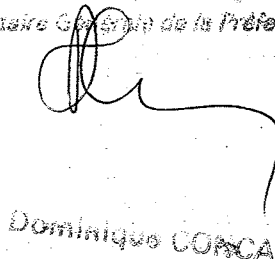 Générale de la Préfe
Dominique CONCA